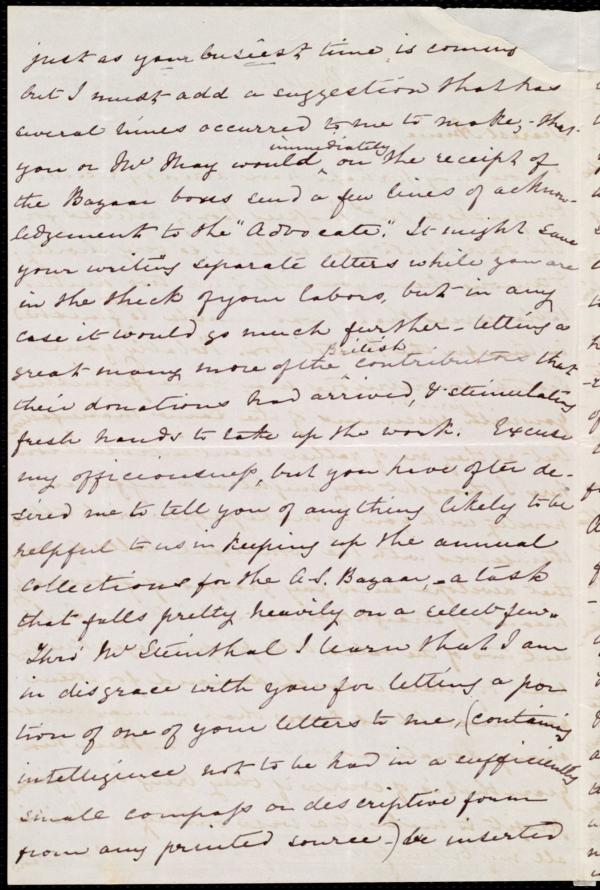 just as your busiest time is coming
but I must add a suggestion that has
several times occurred to me to make, - that
you or Mr May would, immediately on the receipt of
the Bazaar boxes send a few lines of acknow-
ledgement to the "Advocate." It might save
your writing separate letters while you are
in the thick of your labors, but in any
case it would go much further - letting a
great many more of the British contributors that
their donations had arrived, & stimulating
fresh hands to take up the work. Excuse
my officiousness, but you have often de-
sired me to tell you of anything likely to be
helpful to us in keeping up the annual
collections for the A.S. Bazaar, - a task
that falls pretty heavily on a select few.
Thro' Mr Steinthal I learn that I am
in disgrace with you for letting a por
tion of one of your letters to me, (containing
intelligence not to be had in a sufficiently
small compass or descriptive form
from any printed source -) be inserted